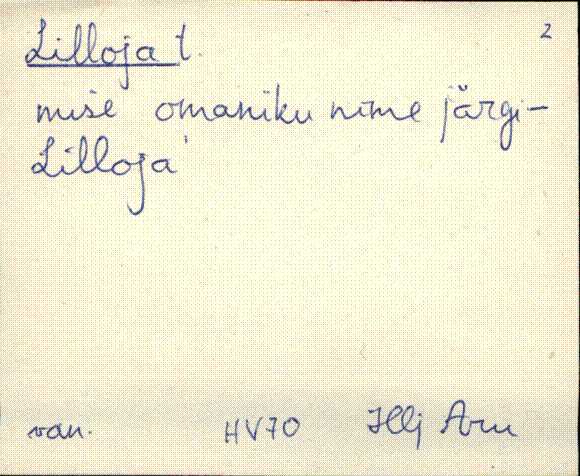 Lilloja t. 2
mise omaniku nime järgi -
Lilloja'
van. HV70 Illj Aru